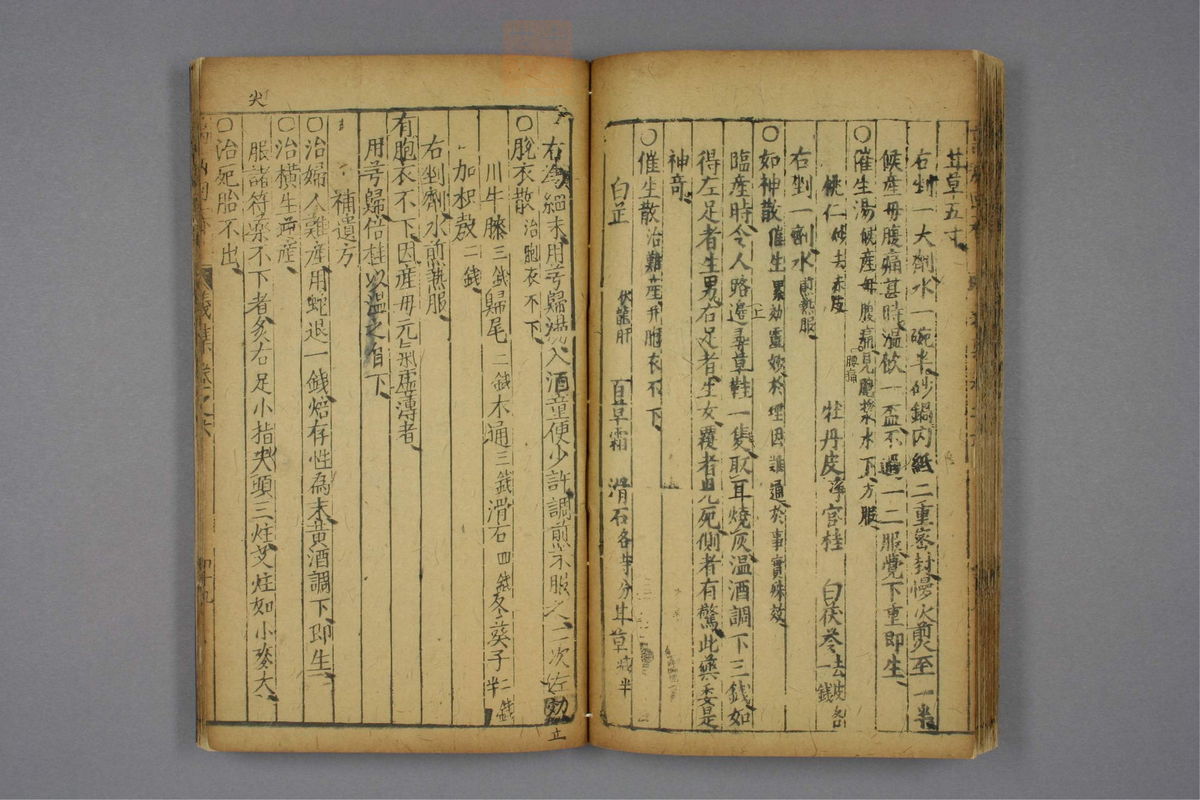 甘草五寸
右剉一大劑水一碗半砂鍋內紙二重密封慢火煎至一半
候產母腹痛甚時溫飲一盃不過一二服覺下重即生
○催生湯候產母腹痛見胞漿水下方服
腰痛
桃仁炒去赤皮 牡丹皮淨官桂 白茯苓一錢去皮各
右剉一劑水煎熱服
○如神散催生累効靈妙於理因難通於事實殊效
臨產時令人路邊尋草鞋一隻取耳燒灰溫酒調下三錢如
得左足者生男右足者生女覆者兒死側者有驚此藥委是
神奇
○催生散治難產并胞衣不下
白芷 伏龍肝 百草霜 滑石各等分甘草減半
右為細末用芎歸湯入酒童便少許調煎末服之二次佐効
正
○脫衣散治胞衣不下
川牛膝三錢歸尾二錢木通三錢滑石四錢冬葵子二錢半
加枳殼二錢
右剉劑水煎熱服
有胞衣不下因產母元氣虛薄者
用芎歸倍桂以溫之自下
補遺方
○治婦人難產用蛇退一錢焙存性為末黃酒調下即生
○治橫生逆產
服諸符藥不下者灸右足小指尖頭三炷艾炷如小麥大
尖
○治死胎不出
卷之六
四十九